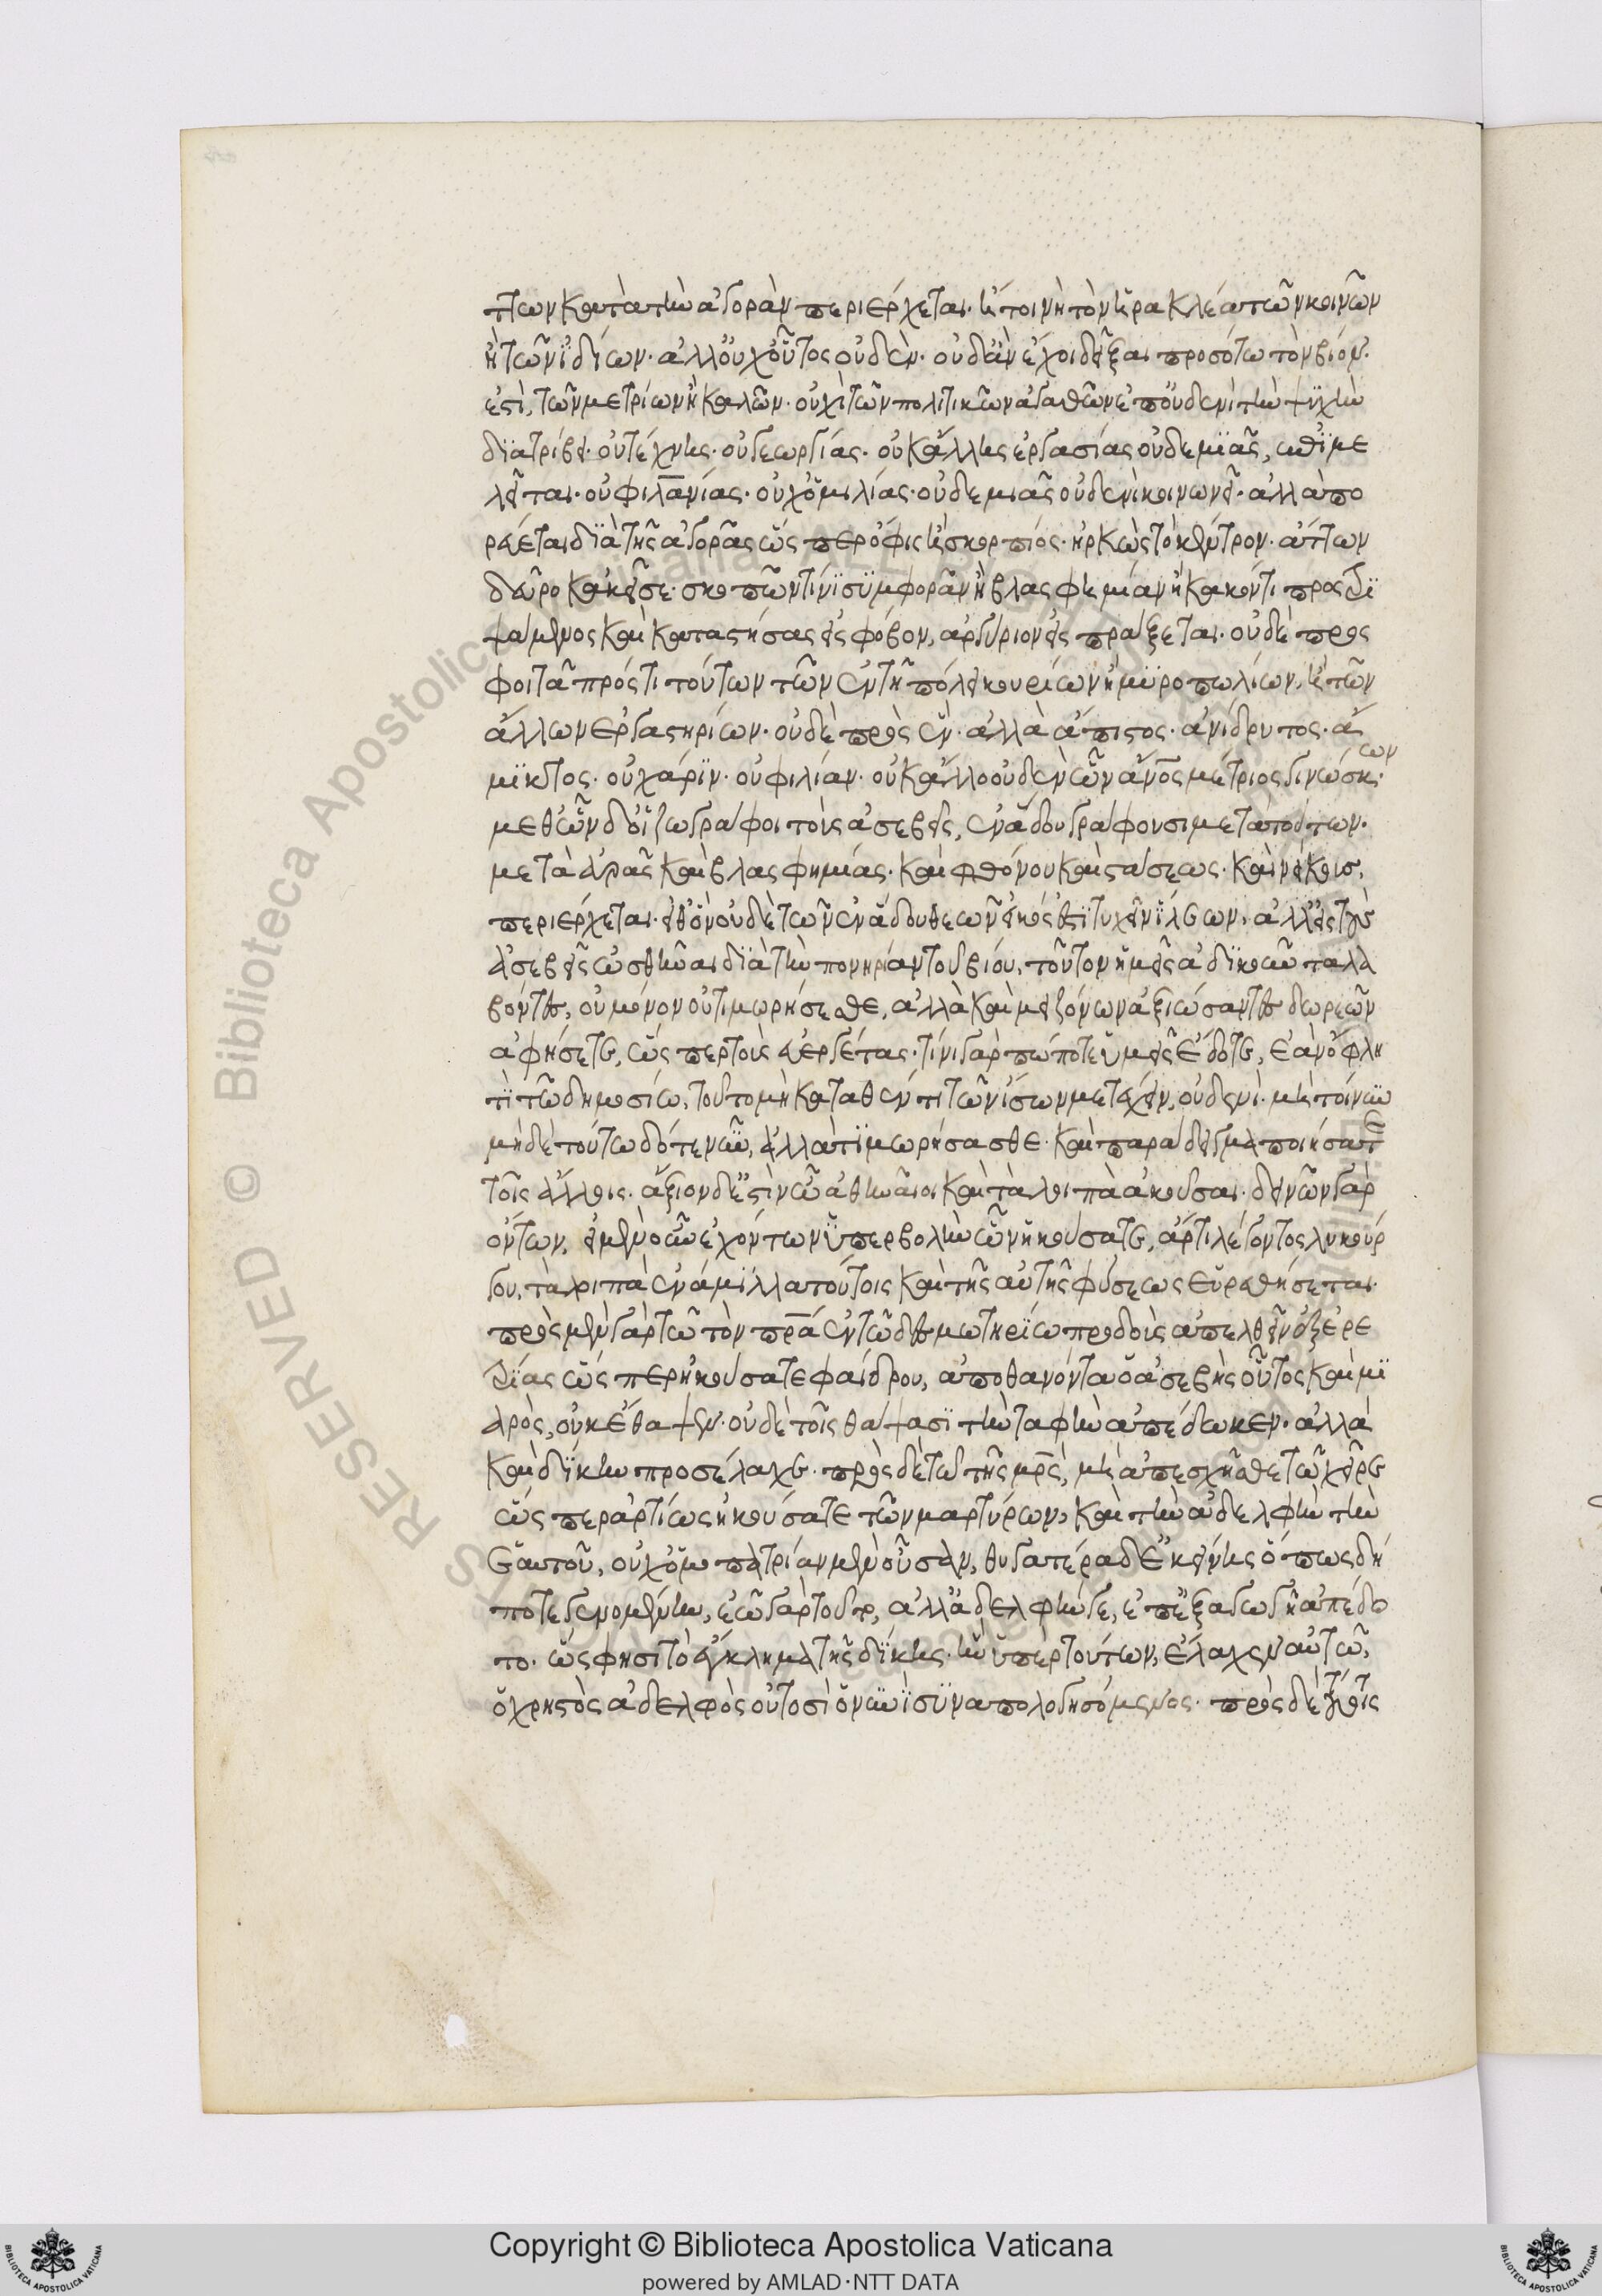 των κατὰ τὴν ἀγορὰν περιέρχεται. ἤτοι νὴ τὸν ἡρακλέα τῶν κοινῶν
ἢ τῶν ἰδίων. ἀλλ' οὐχ οὗτος οὐδὲν. οὐδ' ἂν ἔχοι δεῖξαι πρὸς ὅτω τὸν βίον
ἐστὶ, τῶν μετρίων ἢ καλῶν. οὐχὶ τῶν πολιτικῶν ἀγαθῶν ἐπ' οὐδενὶ τὴν ψυχὴν
διατρίβει. οὐ τέχνης. οὐ γεωργίας. οὐκ ἄλλης ἐργασίας οὐδεμιᾶς, ἐπιμε
λεῖται. οὐ φιλανίας. οὐχ ὁμιλίας. οὐδεμιᾶς οὐδενὶ κοινωνεῖ. ἀλλὰ πο
ρεύεται διὰ τῆς ἀγορᾶς ὥσπερ ὄφις ἢ σκορπίος. ἠρκὼς τὸ κέντρον. ἄττων
δεῦρο κἀκεῖσε. σκοπῶν τίνι συμφορὰν ἢ βλασφημίαν ἢ κακόν τι προστρι
ψάμενος καὶ καταστήσας εἰς φόβον, ἀργύριον εἰσπράξεται. οὐδὲ προς
φοιτᾶ πρός τι τούτων τῶν ἐν τῆ πόλει κουρείων ἢ μυροπωλίων, ἢ τῶν
ἄλλων ἐργαστηρίων. οὐδὲ πρὸς ἕν. ἀλλὰ ἄπιστος. ἀνίδρυτος. ἄ
μικτος. οὐ χάριν. οὐ φιλίαν. οὐκ ἄλλο οὐδὲν ὧν ἄνος μέτριος γινώσκων.
μεθ' ὧν δ' οἱ ζωγράφοι τοὺς ἀσεβεῖς, ἐν ἅδου γράφουσι μετὰ τούτων.
μετὰ ἀρᾶς καὶ βλασφημίας. καὶ φθόνου καὶ στάσεως. καὶ νείκους,
περιέρχεται. εἶθ' ὃν οὐδὲ τῶν ἐν ἅδου θεῶν εἰκός ἐστι τυχεῖν ἵλεων, ἀλλ' εἰς τοὺς
ἀσεβεῖς ὠσθῆναι διὰ τὴν πονηρίαν τοῦ βίου, τοῦτον ὑμεῖς ἀδικοῦντα λα
βόντες, οὐ μόνον οὐ τιμωρήσεσθε, ἀλλὰ καὶ μειζόνων ἀξιώσαντες δωρεῶν
ἀφήσετε, ὥσπερ τοὺς εὐεργέτας. τίνι γὰρ πώποτε ὑμεῖς ἔδοτε, ἐὰν ὄφλη
τι τῶ δημοσίω, τοῦτο μὴ καταθέντι τῶν ἴσων μετέχειν, οὐδενί. μὴ τοίνυν
μὴδὲ τούτω δότε νῦν, ἀλλὰ τιμωρήσασθε. καὶ παράδειγμα ποιήσατε
τοῖς ἄλλοις. ἄξιον δ' ἐστὶν ὦ ἀθηναῖοι καὶ τὰ λοιπὰ ἀκοῦσαι. δεινῶν γὰρ
ὄντων, οὐ μὲν οὖν ἐχόντων ὑπερβολὴν ὧν ἠκούσατε, ἄρτι λέγοντος λυκούρ
γου, τὰ λοιπὰ ἐνάμιλλα τούτοις καὶ τῆς αὐτῆς φύσεως εὑρεθήσεται.
πρὸς μὲν γὰρ τῶ τὸν πρα ἐν τῶ δεσμωτηρίω προδοὺς ἀπελθεῖν ἐξ ἐρε
τρίας ὥσπερ ἠκούσατε φαίδρου, ἀποθανόντα ὁ ἀσεβὴς οὗτος καὶ μι
αρὸς, οὐκ ἔθαψεν. οὐδὲ τοῖς θάψασι τὴν ταφὴν ἀπέδωκεν. ἀλλὰ
καὶ δίκην προσέλαχε. πρὸς δὲ τῶ τῆς μρς, μὴ ἀπεσχῆσθαι τῶ χεῖρε
ὥσπερ ἀρτίως ἠκούσατε τῶν μαρτύρων, καὶ τὴν ἀδελφὴν τὴν
ἑαυτοῦ, οὐχ ὁμοπατρίαν μὲν οὖσαν, θυγατέρα δ' ἐκείνης ὅπως δή
ποτε γενομένην, ἐῶ γὰρ τοῦτο, ἀλλ' ἀδελφήν γε, ἐπ' ἐξαγωγῆ ἀπέδο
το. ὥς φησι τὸ ἔγκλημα τῆς δίκης. ἣν ὑπὲρ τούτων, ἔλαχεν αὐτῶ,
ὁ χρηστὸς ἀδελφὸς οὑτοσὶ ὁ νυνὶ συναπολογησόμενος. πρὸς δὲ τούτοις